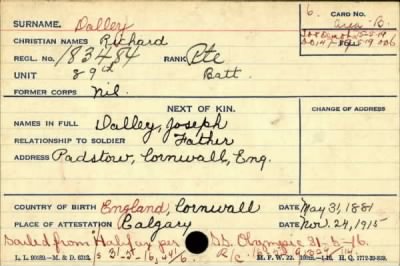 SURNAME. Dalley
CARD NO.
6.
CHRISTIAN NAMES Richard
REGL. NO. 183484 RANK Pte
UNIT 89th Batt.
FORMER CORPS Nil.
NEXT OF KIN.
CHANGE OF ADDRESS
NAMES IN FULL Dalley, Joseph
RELATIONSHIP TO SOLDIER Father
ADDRESS Padstow, Cornwall, Eng.
COUNTRY OF BIRTH England, Cornwall DATE May 31, 1881
PLACE OF ATTESTATION Calgary DATE Nov. 24, 1915
Sailed from Halifax per S.S. Olympic 31-5-16.
L. L. 90189.—M. & D. 6312. M. F. W. 22
H. Q. 1772-39-839.